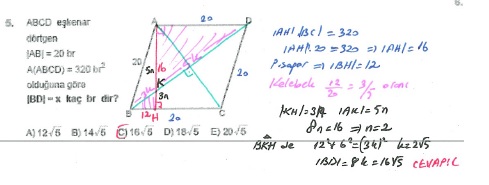 5. ABCD eşkenar
dörtgen
|AB| = 20 br
A(ABCD) = 320 br²
olduğuna göre
|BD| = x kaç br dir?
A) 12√5 B) 14√5 C) 16√5 D) 18√5 E) 20√5
A 20 D
20
5n 16
K
3n
20
B 12 H C
20
|AH| |BC| = 320
|AH|.20 = 320 ⇒ |AH| = 16
Pisagor ⇒ |BH| = 12
Kelebek 12/20 = 3/5 oranı
|KH| = 3n |AK| = 5n
8n = 16 ⇒ n = 2
BKH de 12² + 6² = (3k)² k = 2√5
|BD| = 8k = 16√5 CEVAP C